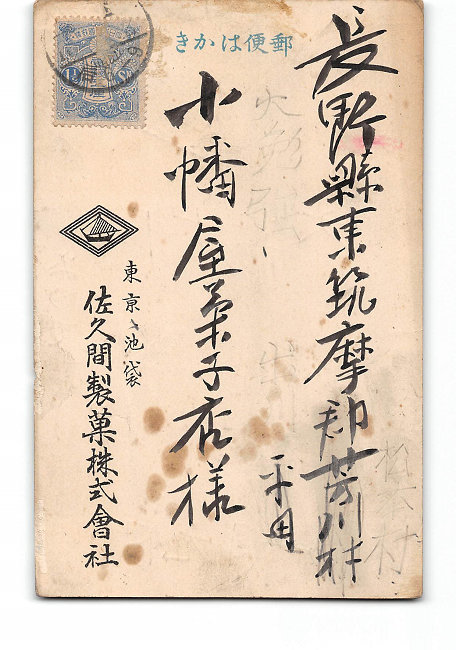 郵便はかき
長野縣東筑摩郡芳川村
平田
小幡屋菓子店様
東京池袋
佐久間製菓株式會社